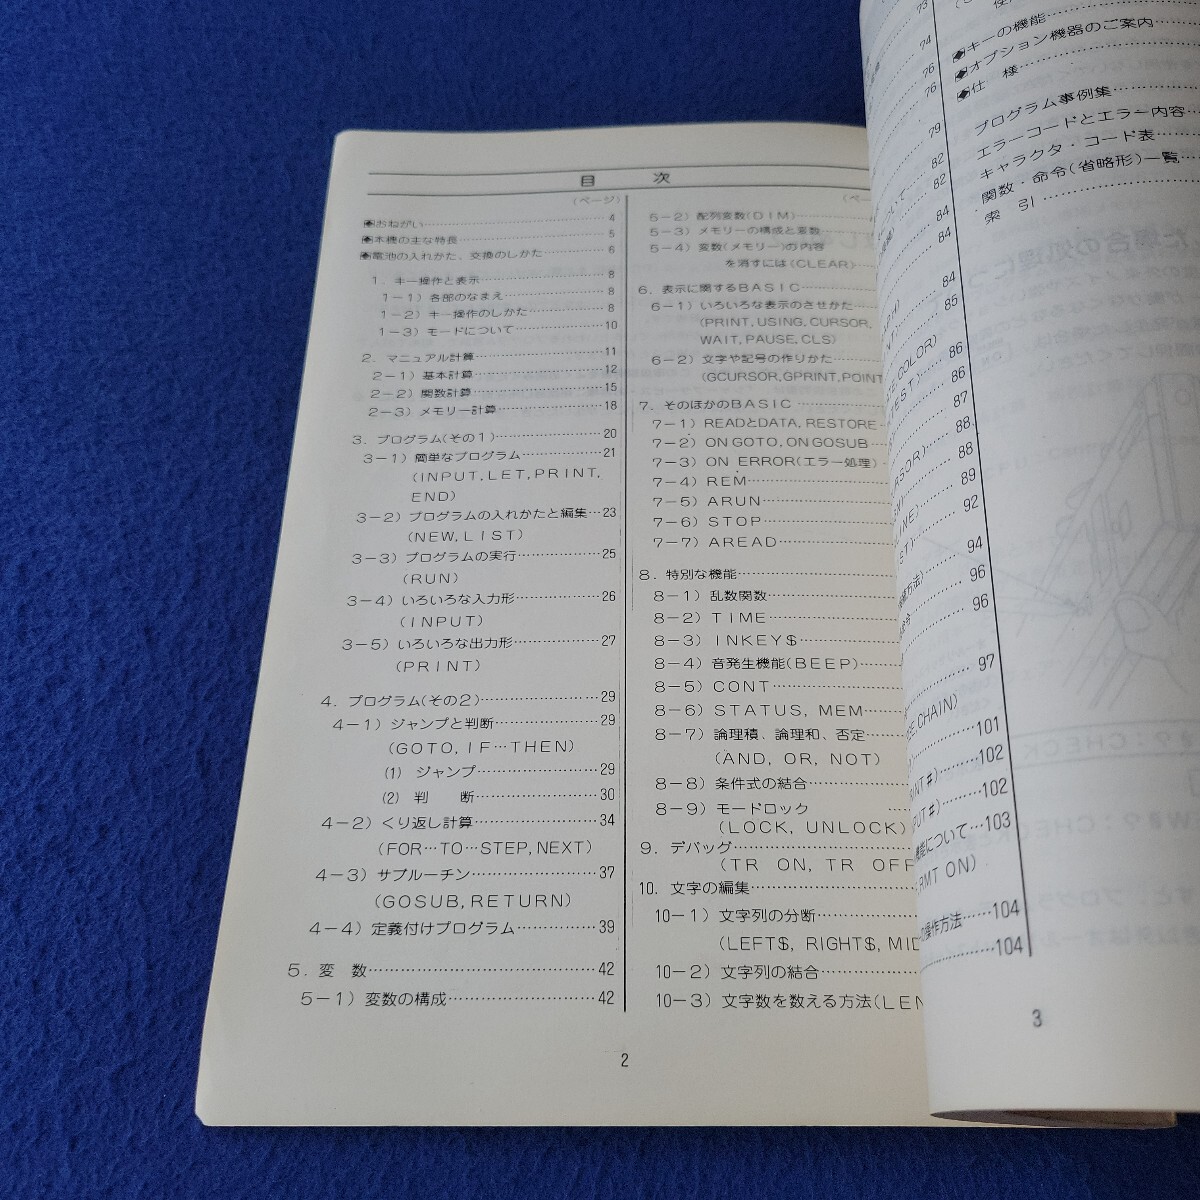 目 次
(ページ)
おねがい…………4
本機の主な特長…………5
電池の入れかた、交換のしかた…………6
1. キー操作と表示…………8
1-1) 各部のなまえ…………8
1-2) キー操作のしかた…………8
1-3) モードについて…………10
2. マニュアル計算…………11
2-1) 基本計算…………12
2-2) 関数計算…………15
2-3) メモリー計算…………18
3. プログラム(その1)…………20
3-1) 簡単なプログラム…………21
(INPUT, LET, PRINT,
END)
3-2) プログラムの入れかたと編集…23
(NEW, LIST)
3-3) プログラムの実行…………25
(RUN)
3-4) いろいろな入力形…………26
(INPUT)
3-5) いろいろな出力形…………27
(PRINT)
4. プログラム(その2)…………29
4-1) ジャンプと判断…………29
(GOTO, IF…THEN)
(1) ジャンプ…………29
(2) 判 断…………30
4-2) くり返し計算…………34
(FOR…TO…STEP, NEXT)
4-3) サブルーチン…………37
(GOSUB, RETURN)
4-4) 定義付けプログラム…………39
5. 変 数…………42
5-1) 変数の構成…………42
(ペー
5-2) 配列変数(DIM)…………
5-3) メモリーの構成と変数
5-4) 変数(メモリー)の内容
を消すには(CLEAR)……
6. 表示に関するBASIC…………
6-1) いろいろな表示のさせかた……
(PRINT, USING, CURSOR,
WAIT, PAUSE, CLS)
6-2) 文字や記号の作りかた…………
(GCURSOR, GPRINT, POINT
7. そのほかのBASIC…………
7-1) READとDATA, RESTORE…
7-2) ON GOTO, ON GOSUB……
7-3) ON ERROR(エラー処理)…
7-4) REM…………
7-5) ARUN…………
7-6) STOP…………
7-7) AREAD…………
8. 特別な機能…………
8-1) 乱数関数…………
8-2) TIME…………
8-3) INKEY$…………
8-4) 音発生機能(BEEP)……
8-5) CONT…………
8-6) STATUS, MEM……
8-7) 論理積、論理和、否定……
(AND, OR, NOT)
8-8) 条件式の結合…………
8-9) モードロック
(LOCK, UNLOCK)
9. デバッグ…………
(TR ON, TR OFF
10. 文字の編集…………
10-1) 文字列の分断…………
(LEFT$, RIGHT$, MID
10-2) 文字列の結合…………
10-3) 文字数を数える方法(LEN
2
73
74
76
76
79
82
ついて……82
84
84
84
85
COLOR)
86
TEST)……86
87
88
RSOR)……88
89
INE)……92
94
96
96
97
CHAIN)
101
INT#)………102
PUT#)………102
機能について…103
RMT ON)
の操作方法……104
…………104
キーの機能…………
オプション機器のご案内……
仕 様…………
プログラム事例集…………
エラーコードとエラー内容……
キャラクタ・コード表…………
関数・命令(省略形)一覧……
索 引…………
3